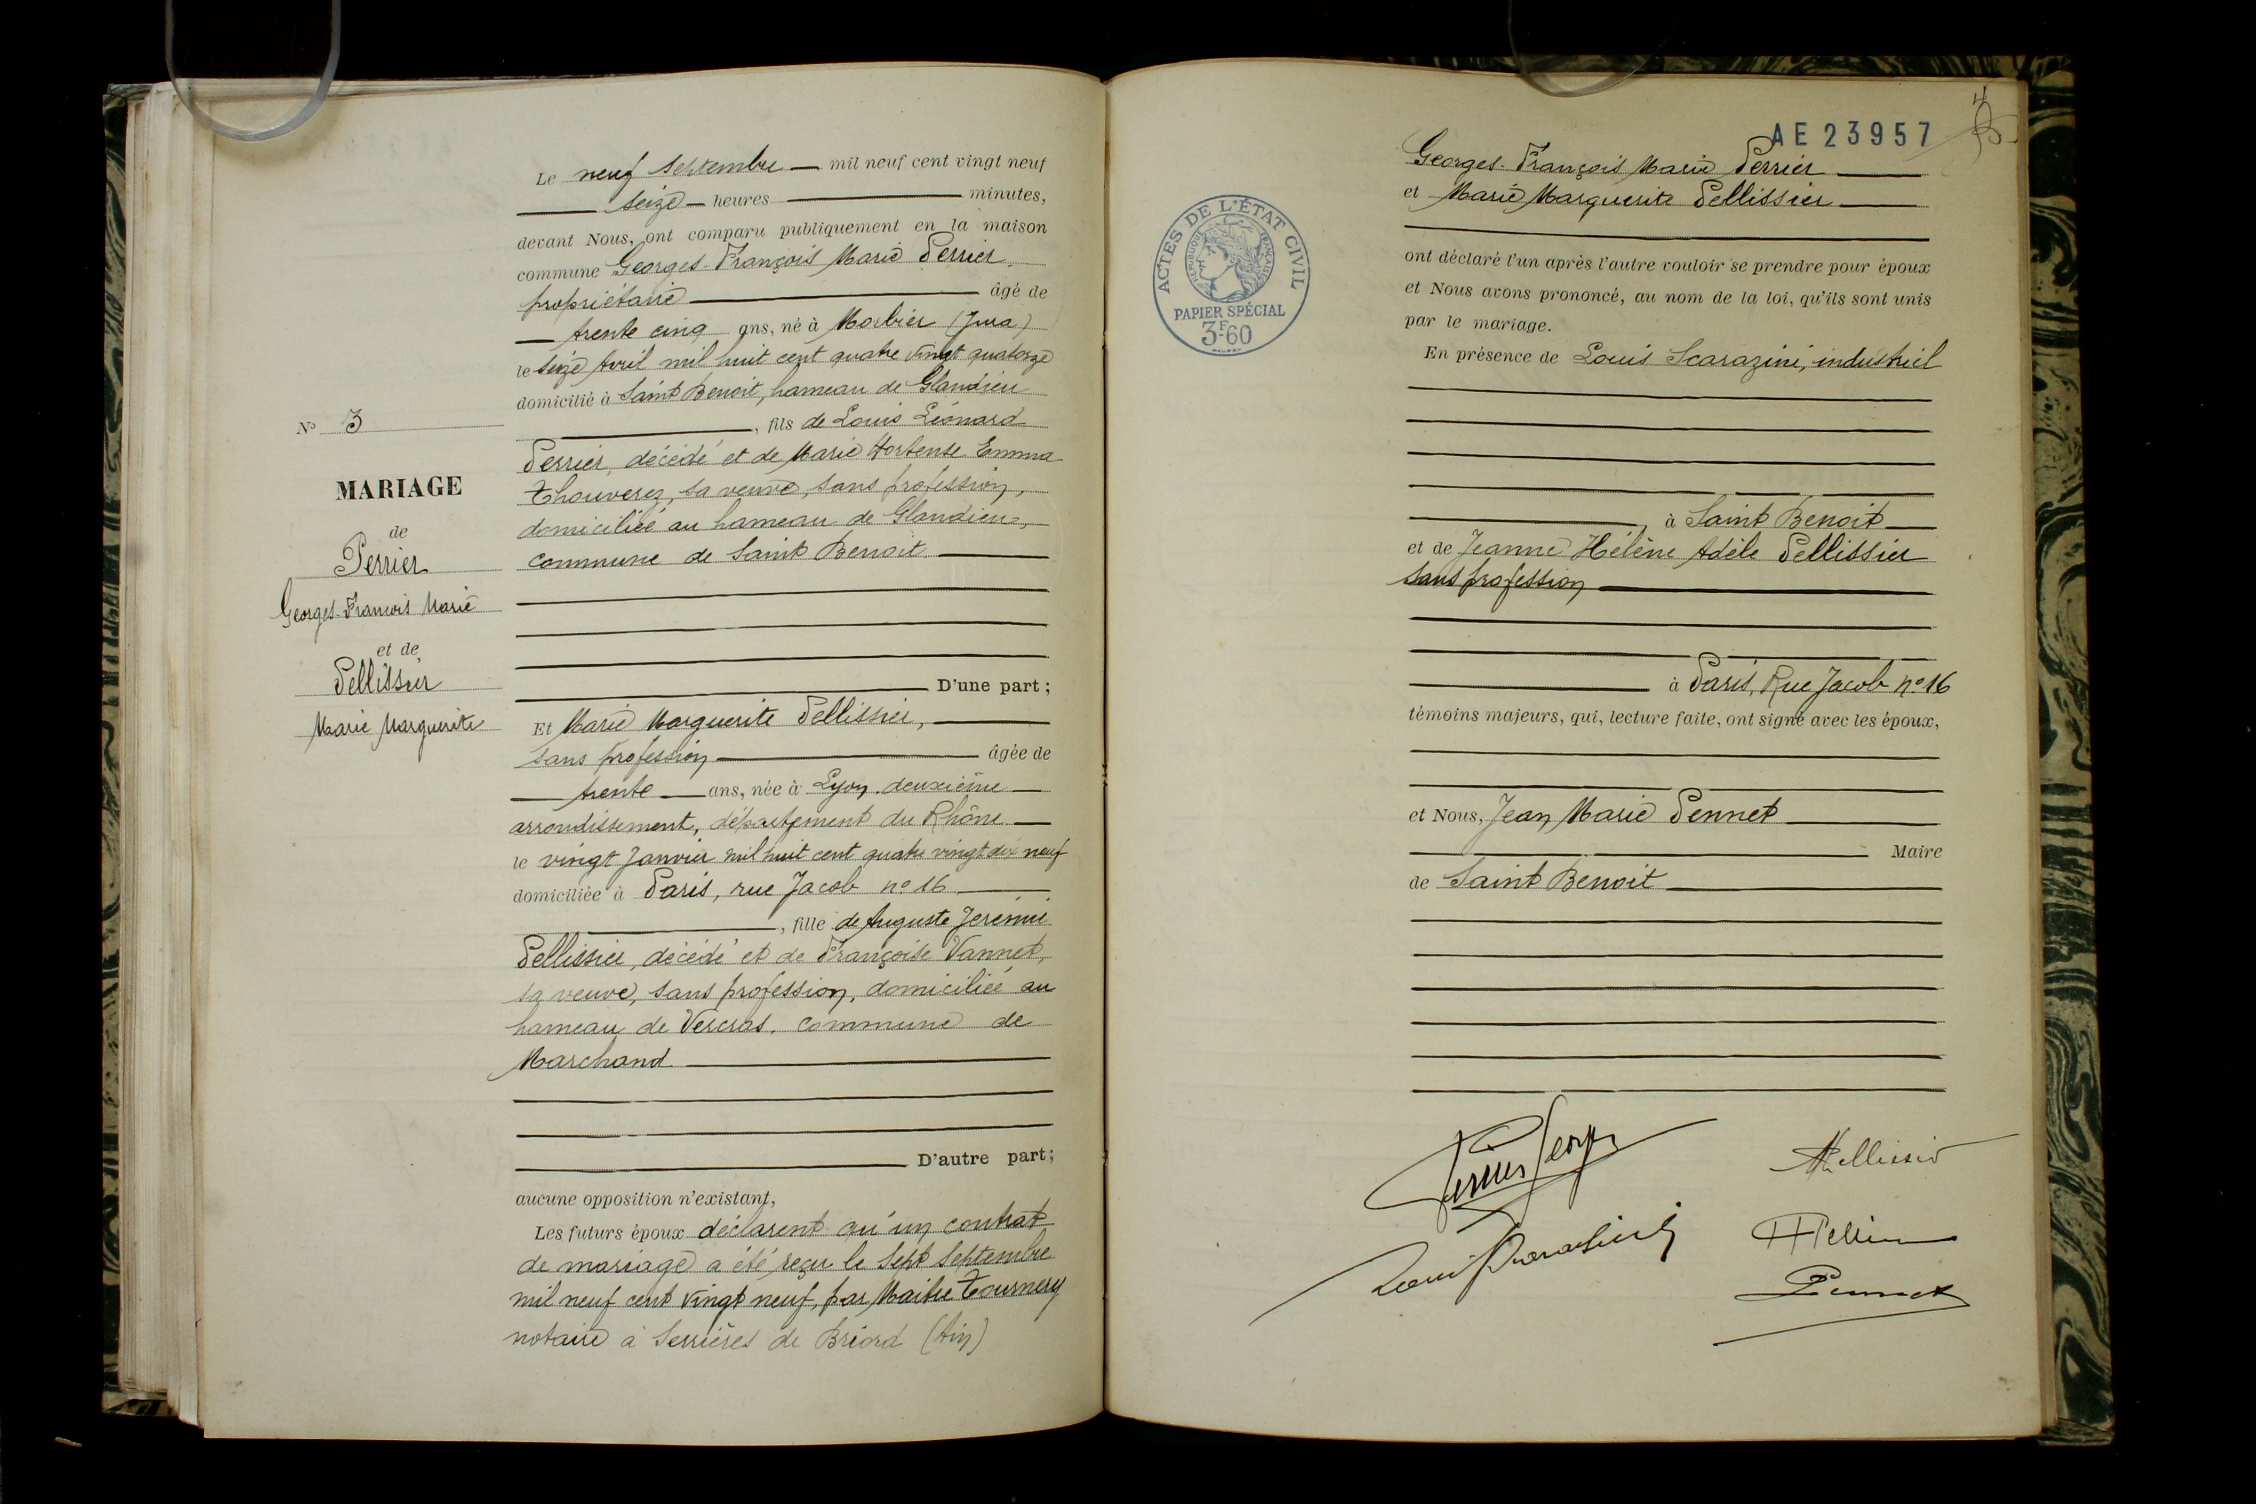 Le neuf Septembre mil neuf cent vingt neuf
seize heures minutes,
devant Nous, ont comparu publiquement en la maison
commune Georges-François Marie Perrier
propriétaire âgé de
trente cinq ans, né à Morbier (Jura)
le seize Avril mil huit cent quatre vingt quatorze
domicilié à Saint Benoit, hameau de Glandieu
, fils de Louis Léonard
Perrier, décédé et de Marie Hortense Emma
Thouverez, sa veuve, sans profession,
domiciliée au hameau de Glandieu,
commune de Saint Benoit
No 3
MARIAGE
de
Perrier
Georges-François Marie
et de
Pellissier
Marie Marguerite
D'une part;
Et Marie Marguerite Pellissier,
sans profession âgée de
trente ans, née à Lyon, deuxième
arrondissement, département du Rhône
le vingt Janvier mil huit cent quatre vingt dix neuf
domiciliée à Paris, rue Jacob no 16
, fille de Auguste Jérémie
Pellissier, décédé et de Françoise Vannet,
sa veuve, sans profession, domiciliée au
hameau de Vercras, commune de
Marchand
D'autre part;
aucune opposition n'existant,
Les futurs époux déclarent qu'un contrat
de mariage a été reçu le sept Septembre
mil neuf cent vingt neuf, par Maitre Tournery
notaire à Serrières de Briord (Ain)
AE 23957
4
Georges-François Marie Perrier
et Marie Marguerite Pellissier
ACTES DE L'ÉTAT CIVIL
RÉPUBLIQUE FRANÇAISE
PAPIER SPÉCIAL
3F-60
ont déclaré l'un après l'autre vouloir se prendre pour époux
et Nous avons prononcé, au nom de la loi, qu'ils sont unis
par le mariage.
En présence de Louis Scarazini, industriel
, à Saint Benoit
et de Jeanne Hélène Adèle Pellissier
sans profession
à Paris, Rue Jacob no 16
témoins majeurs, qui, lecture faite, ont signé avec les époux,
et Nous, Jean Marie Pennet
Maire
de Saint Benoit
Perrier Georges
Pennet